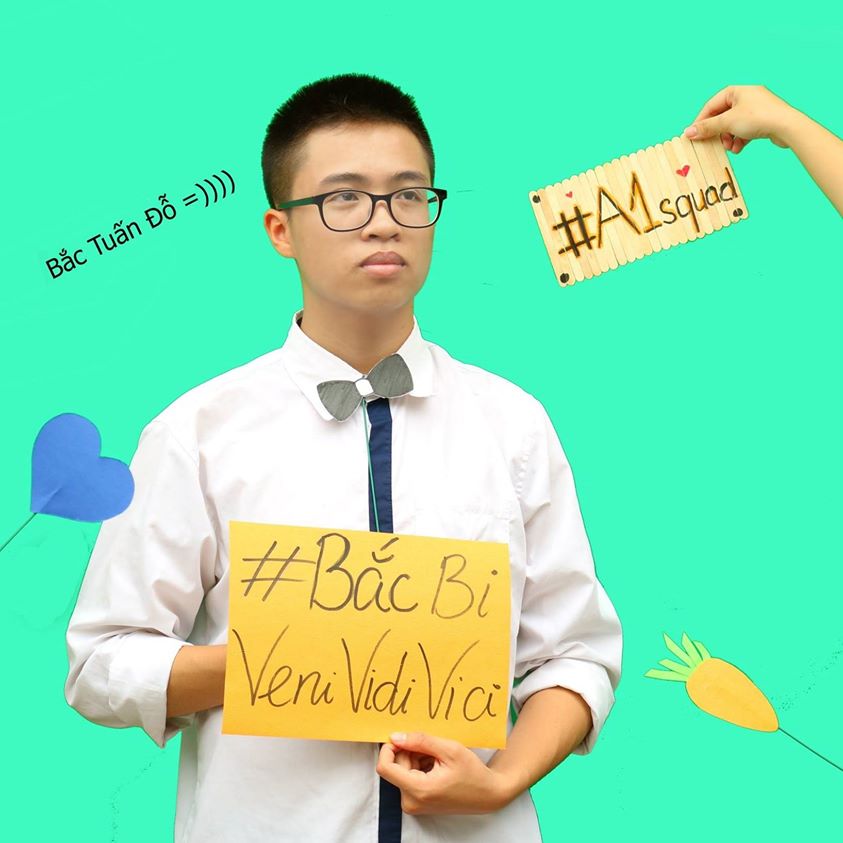 Bắc Tuấn Đỗ =))))
#A1squad
#Bắc Bi
Veni Vidi Vici